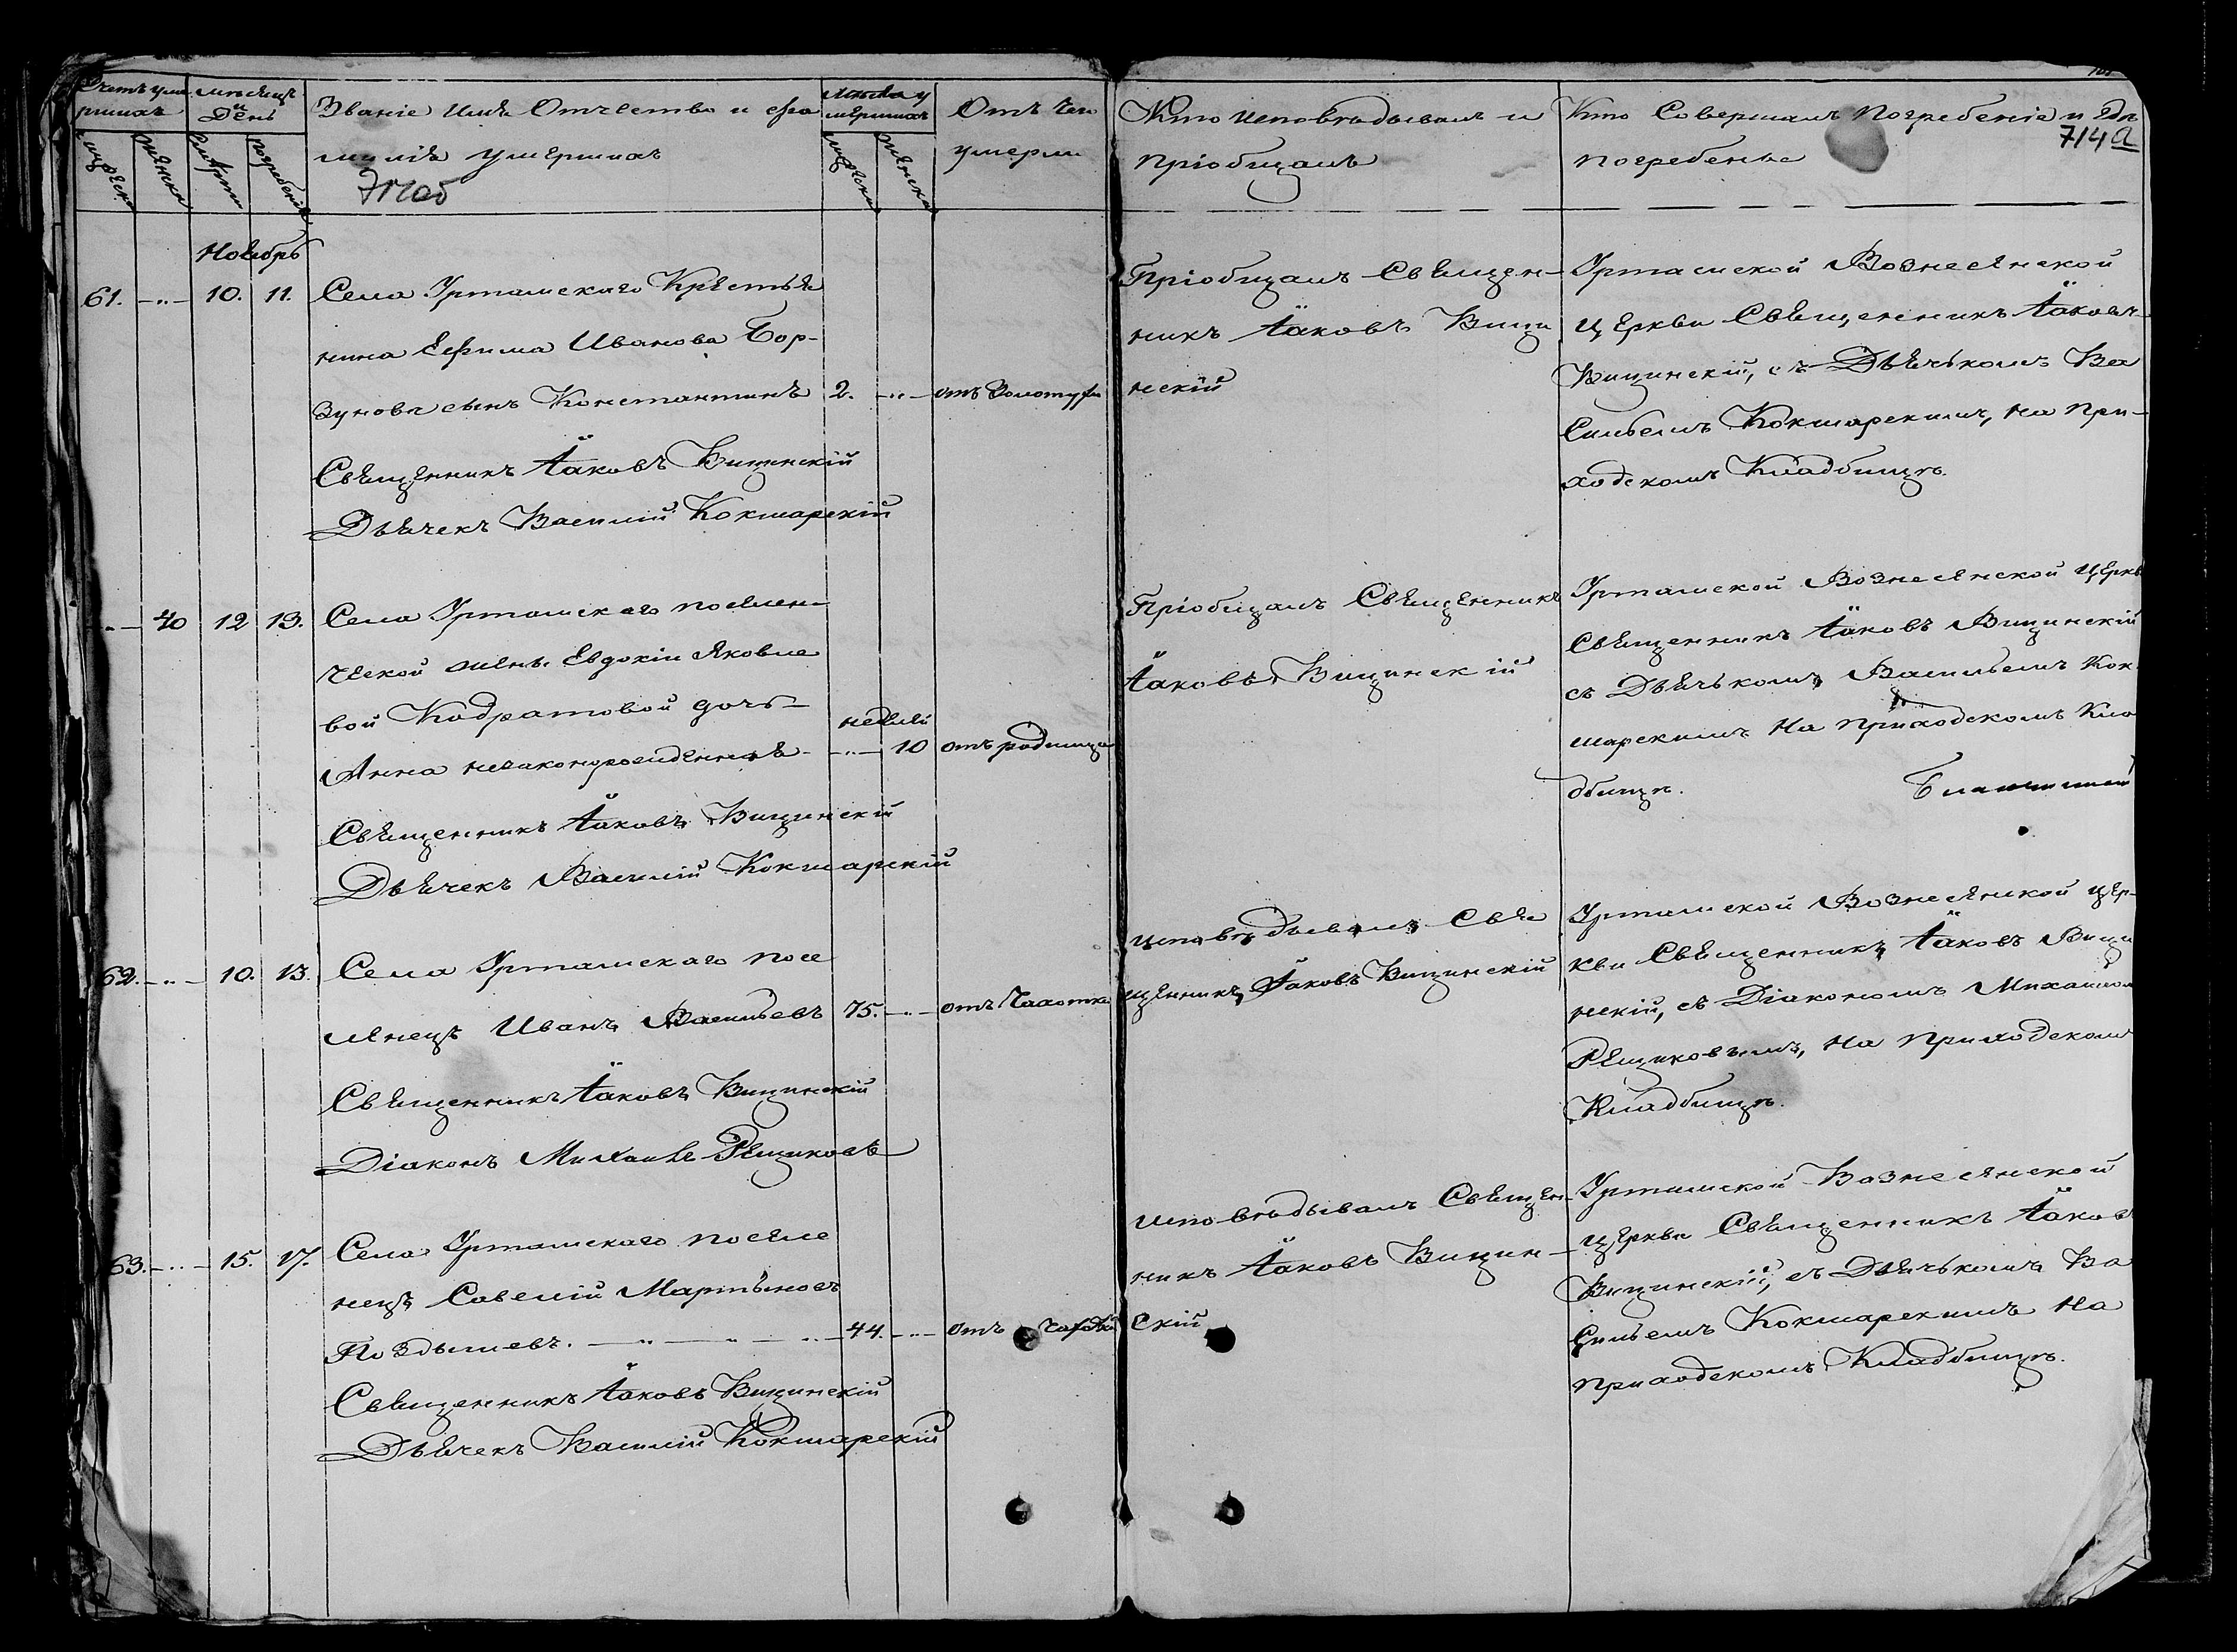 Счетъ уме
ршихъ
мѣсяцъ
и
День
Званіе Имя Отчество и фа
милія умершихъ
Лѣта у
мершихъ
Отъ чего
умерли
Кто исповѣдывалъ и
пріобщалъ
Кто Совершалъ Погребеніе и гдѣ
погребены
мужеска
женска
Смерти
погребенія
мужеска
женска
714 а
Ноябрь
61. -"- 10. 11. Села Уртамскаго Крестья
нина Ефима Иванова Бор-
зунова сынъ Константинъ 2. -"- отъ Золотухи
Священникъ Іаковъ Вицинскій
Дьячекъ Василій Кокшарскій
Пріобщалъ Священ-
никъ Іаковъ Вици
нскій
Уртамской Вознесенской
Церкви Священникъ Іаковъ
Вицинскій, съ Дьячькомъ Ва
сильемъ Кокшарскимъ, на При-
ходскомъ Кладбищѣ.
-"- 40 12 13. Села Уртамскаго поселен-
ческой жены Евдокіи Яковле
вой Кодратовой дочь-
недѣль
Анна незаконорожденная -"- 10 отъ родимца
Священникъ Іаковъ Вицинскій
Дьячекъ Василій Кокшарскій
Пріобщалъ Священникъ
Іаковъ Вицинскій
Уртамской Вознесенской Церкв
Священникъ Іаковъ Вицинскій
съ Дьячькомъ Васильемъ Кок
шарскимъ на Приходскомъ Кла
дбищѣ.
62. -"- 10. 13. Села Уртамскаго посе
ленецъ Иванъ Васильевъ 75. -"- отъ Чахотки
Священникъ Іаковъ Вицинскій
Діаконъ Михаилъ Рещиковъ
исповѣдывалъ Свя
щенникъ Іаковъ Вицинскій
Уртамской Вознесенской цер-
кви Священникъ Іаковъ Вици
нскій, съ Діакономъ Михаилом
Рещиковымъ, на Приходском
Кладбищѣ.
63. -"- 15. 17. Села Уртамскаго поселе
нецъ Савелій Мартыновъ
Поздышевъ. -"-"-"- 44. -"- отъ Чахотки
Священникъ Іаковъ Вицинскій
Дьячекъ Василій Кокшарскій
исповѣдывалъ Священ-
никъ Іаковъ Вицин-
скій
Уртамской Вознесенской
Церкви Священникъ Іаков
Вицинскій, съ Дьячькомъ Ва
сильемъ Кокшарскимъ на
приходскомъ Кладбищѣ.